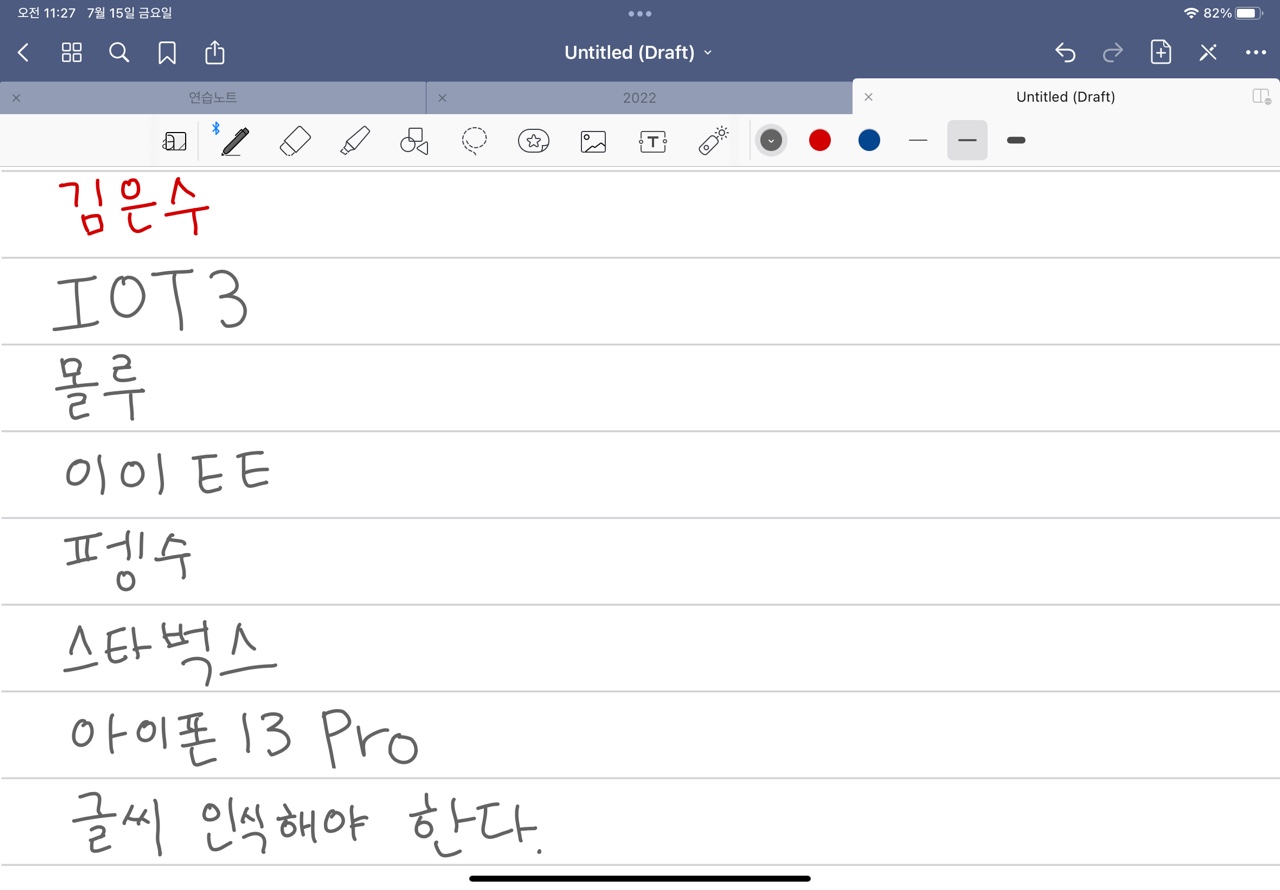 오전 11:27 7월 15일 금요일 82%
Untitled (Draft)
연습노트 2022 Untitled (Draft)
김은수
IOT3
몰루
이이 EE
펭수
스타벅스
아이폰 13 Pro
글씨 인식해야 한다.